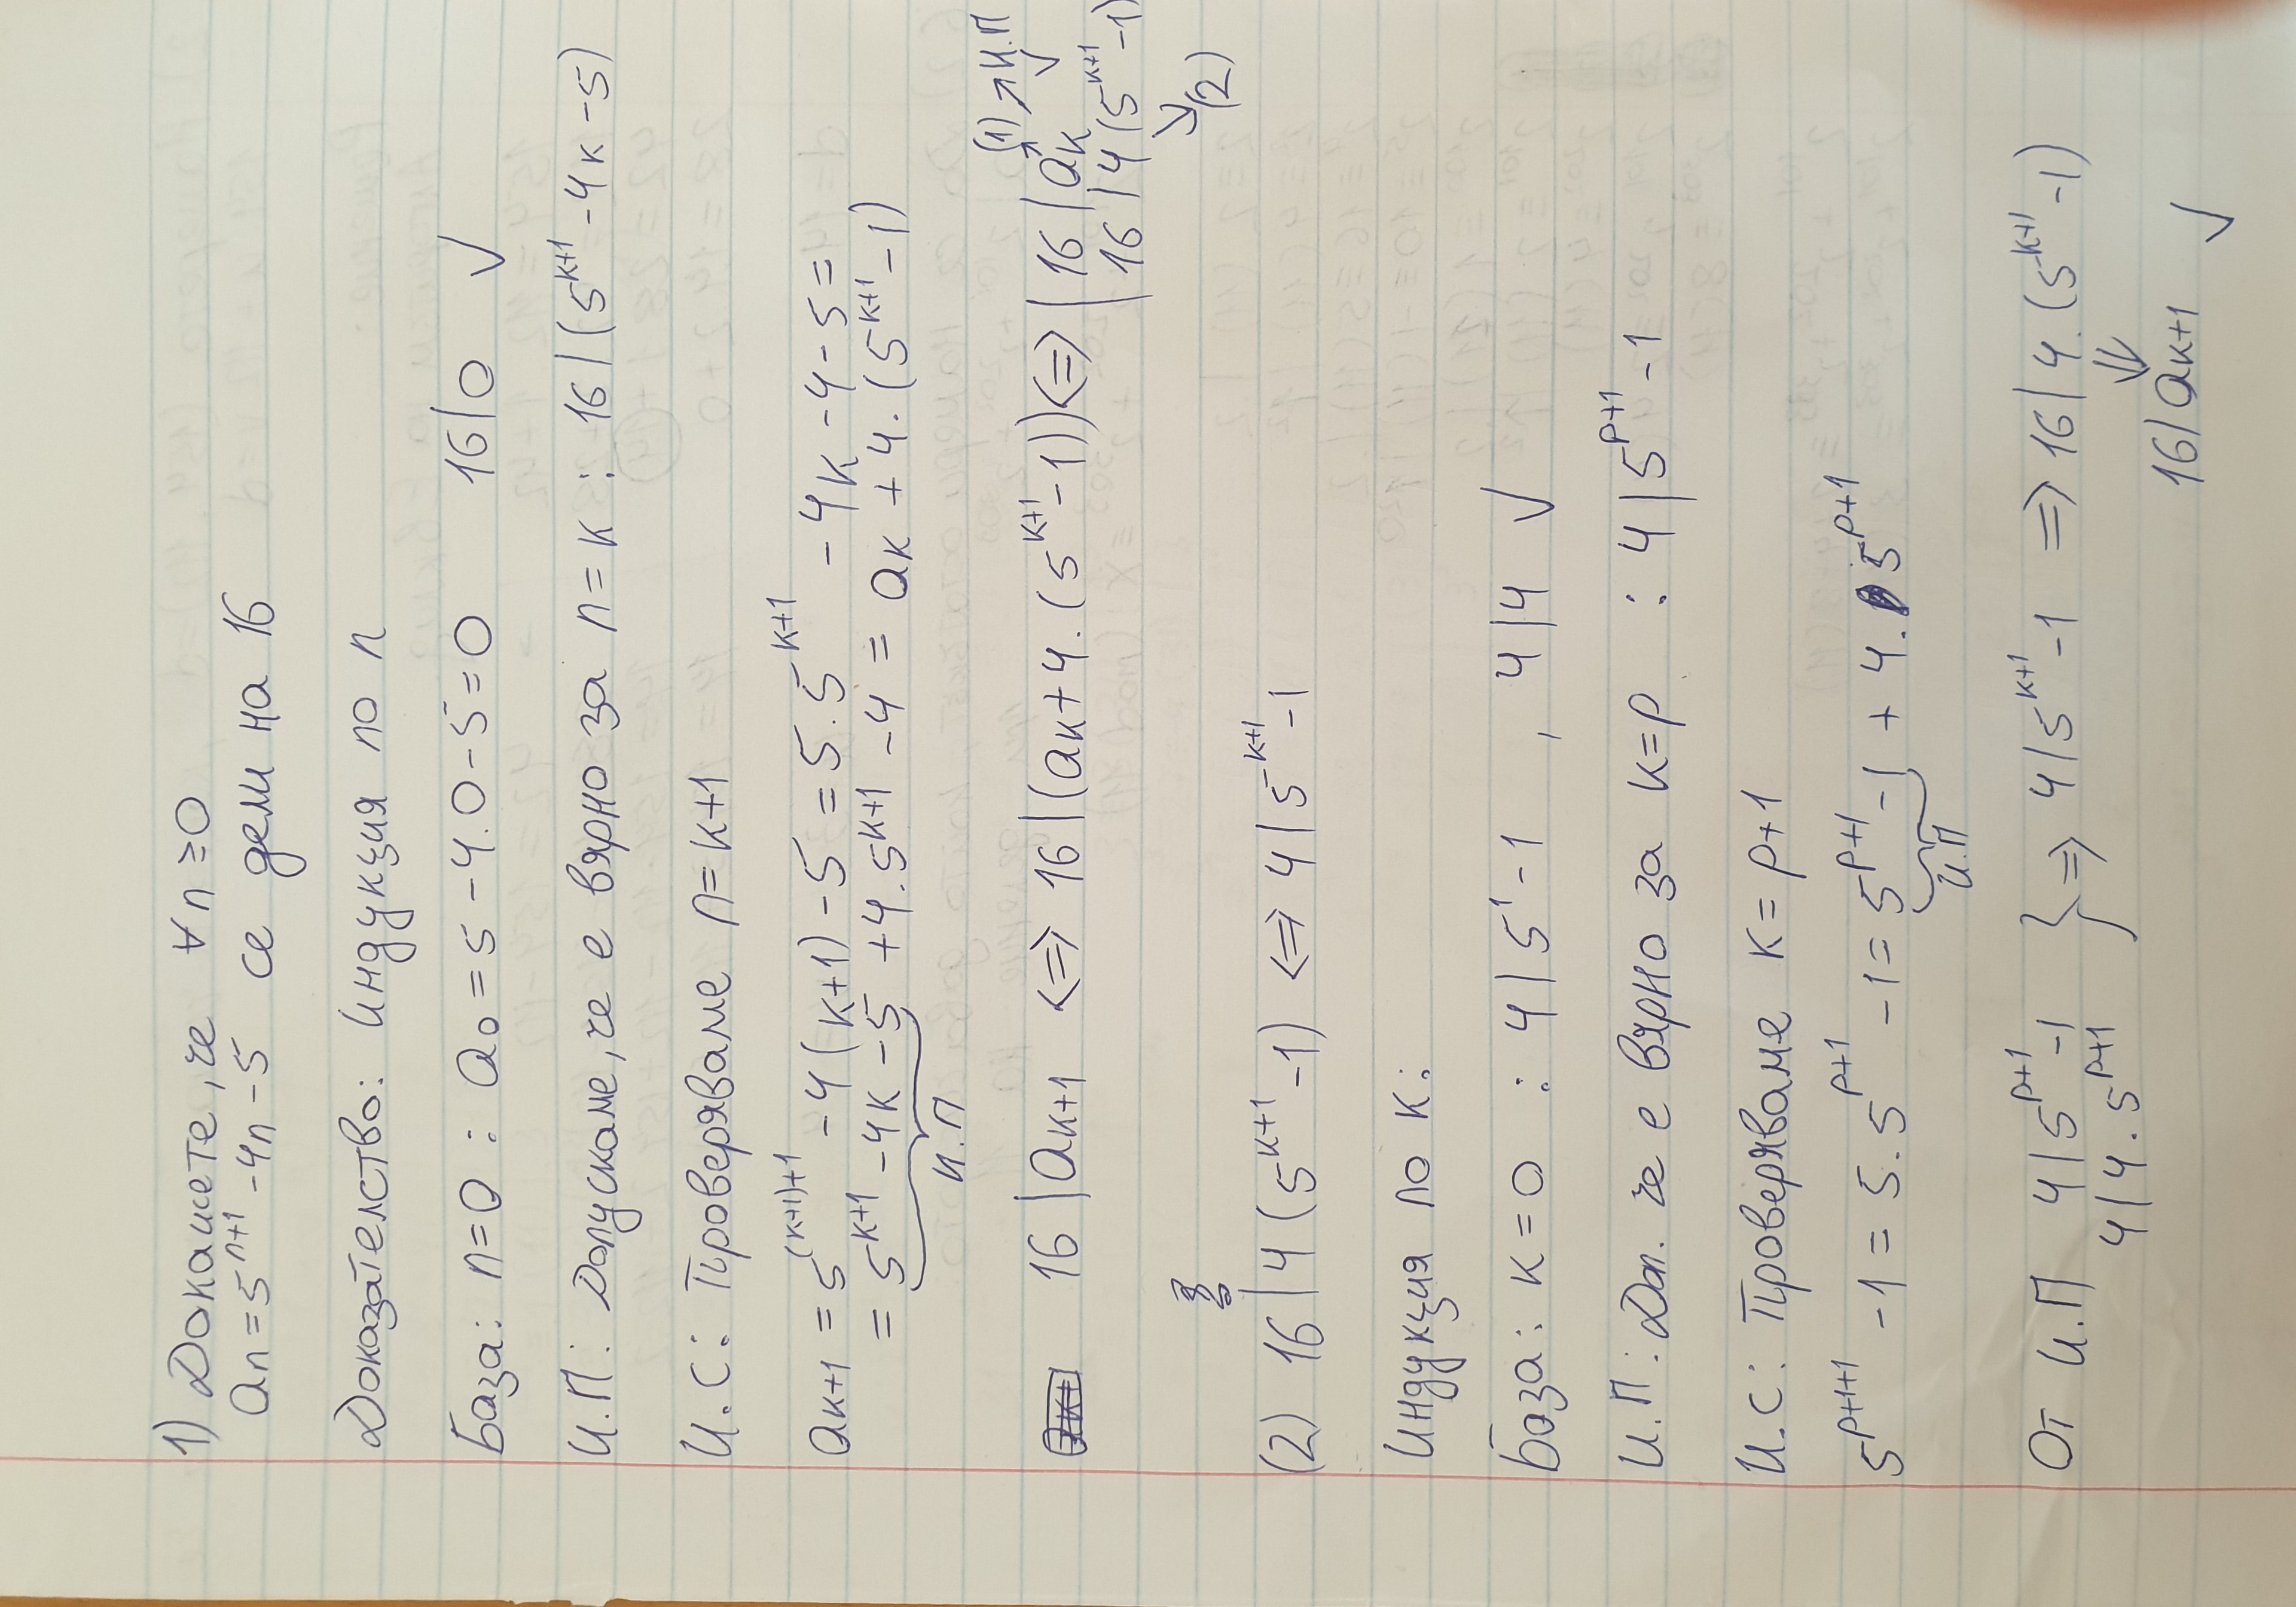 1) Докажете, че ∀n ≥ 0
an = 5^(n+1) - 4n - 5 се дели на 16
Доказателство: Индукция по n
База: n=0 : a0 = 5 - 4.0 - 5 = 0 16|0 ✓
И.П: Допускаме, че е вярно за n = k : 16 | (5^(k+1) - 4k - 5)
И.С: Проверяваме n = k+1
ak+1 = 5^((k+1)+1) - 4(k+1) - 5 = 5.5^(k+1) - 4k - 4 - 5 =
= 5^(k+1) - 4k - 5 + 4.5^(k+1) - 4 = ak + 4.(5^(k+1) - 1)
И.П
(1) ↗ И.П
16 | ak+1 <=> 16 | (ak + 4.(5^(k+1) - 1)) <=> | 16 | ak ✓
| 16 | 4(5^(k+1) - 1)
↘ (2)
(2) 16 | 4(5^(k+1) - 1) <=> 4 | 5^(k+1) - 1
Индукция по k:
База: k = 0 : 4 | 5^1 - 1 , 4|4 ✓
И.П: Доп. че е вярно за k=p : 4 | 5^(p+1) - 1
И.С: Проверяваме k = p+1
5^(p+1+1) - 1 = 5.5^(p+1) - 1 = 5^(p+1) - 1 + 4.5^(p+1)
И.П
От И.П 4 | 5^(p+1) - 1 } => 4 | 5^(k+1) - 1 => 16 | 4.(5^(k+1) - 1)
4 | 4.5^(p+1)
⇓
16 | ak+1 ✓